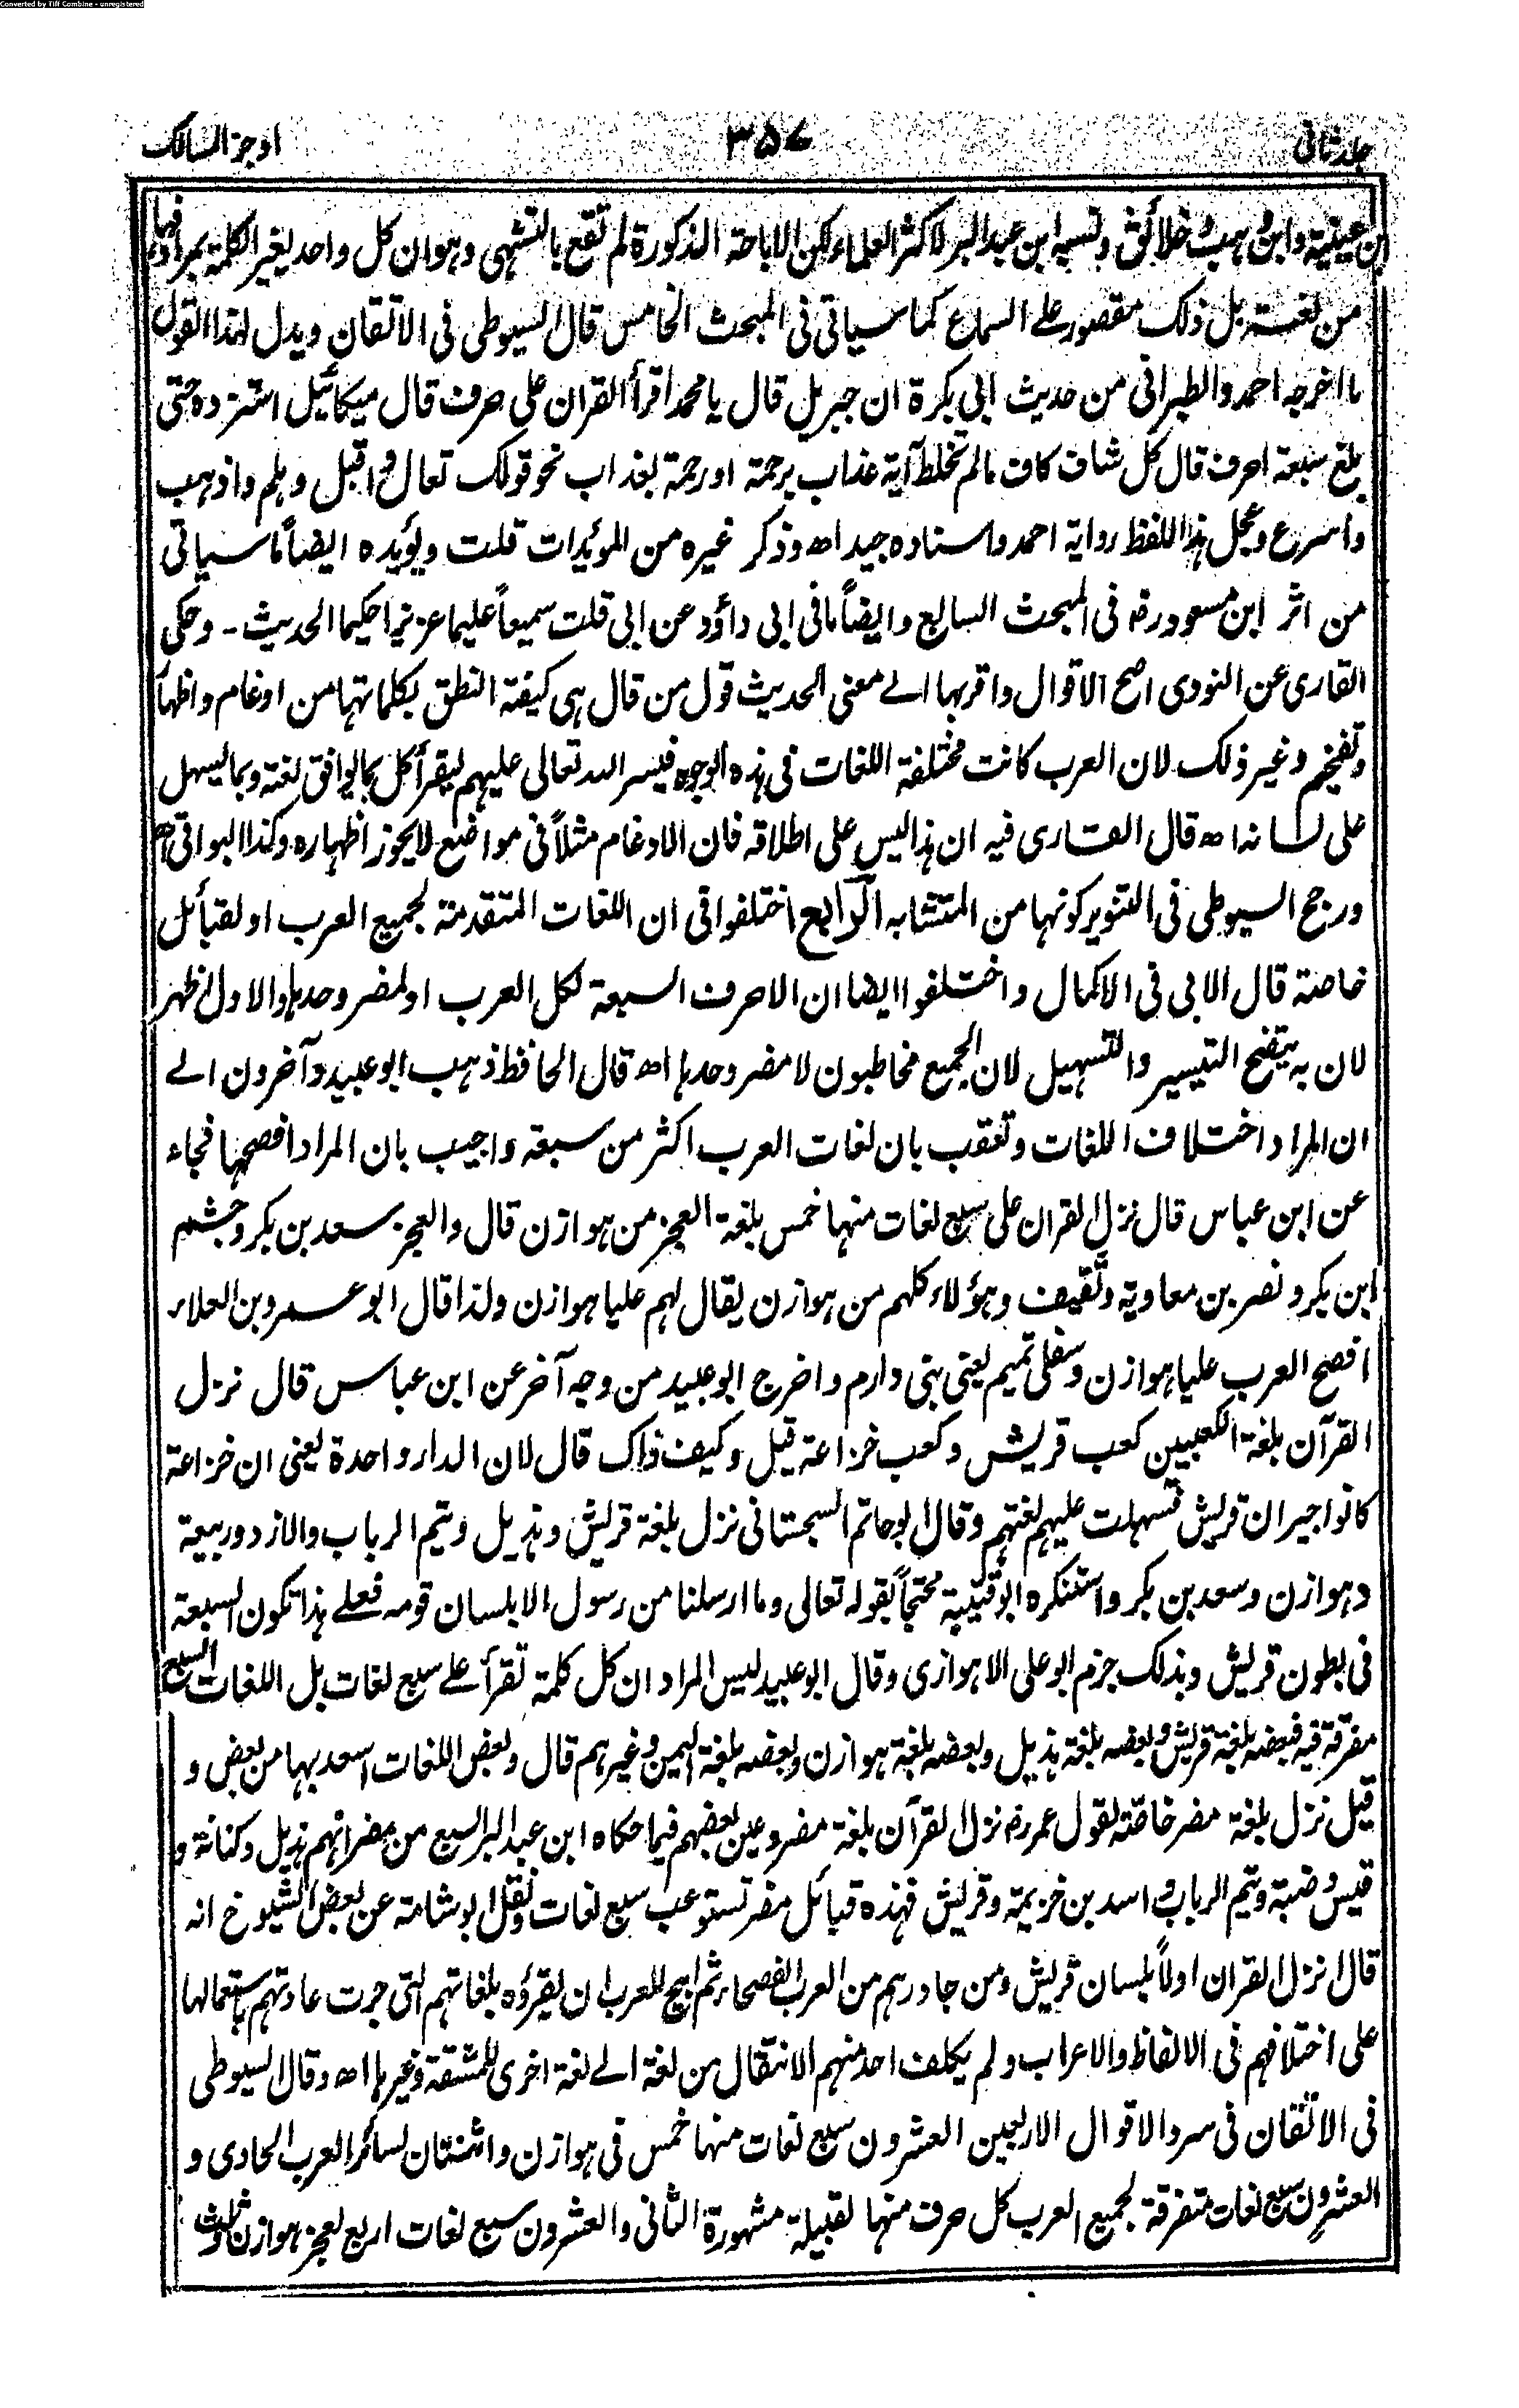 Converted by Tiff Combine - unregistered
جلد ثانى ٣٥٧ اوجز المسالك
ابن عيينة وابن وهب وخلائق ونسبه ابن عبد البر لاكثر العلماء لكن الاباحة المذكورة لم تقع بالتشهى وهو ان كل واحد يغير الكلمة بمرادفها
من لغته بل ذلك مقصور على السماع كما سياتى فى المبحث الخامس قال السيوطى فى الاتقان ويدل لهذا القول
ما اخرجه احمد والطبرانى من حديث ابى بكرة ان جبريل قال يا محمد اقرأ القران على حرف قال ميكائيل استزده حتى
بلغ سبعة احرف قال كل شاف كاف ما لم تخلط آية عذاب برحمة او رحمة بعذاب نحو قولك تعال واقبل وهلم واذهب
واسرع وعجل هذا اللفظ رواية احمد واسناده جيد اھ وذكر غيره من المؤيدات قلت ويؤيده ايضاً ما سياتى
من اثر ابن مسعود رض فى المبحث السابع وايضاً ما فى ابى داؤد عن ابى قلت سميعاً عليما عزيزا حكيما الحديث - وحكى
القارى عن النووى اصح الاقوال واقربها الے معنى الحديث قول من قال هى كيفية النطق بكلماتها من ادغام واظهار
وتفخيم وغير ذلك لان العرب كانت مختلفة اللغات فى هذه الوجوه فيسر الله تعالى عليهم ليقرأ كل بما يوافق لغته وبما يسهل
على لسانه اھ قال القارى فيه ان هذا ليس على اطلاقه فان الادغام مثلاً فى مواضع لا يجوز اظهاره وكذا البواقى اھ
ورجح السيوطى فى التنوير كونها من المتشابه الرابع اختلفوا فى ان اللغات المتقدمة لجميع العرب او لقبائل
خاصة قال الابى فى الاكمال واختلفوا ايضا ان الاحرف السبعة لكل العرب او لمضر وحدها والاول اظهر
لان به يتضح التيسير والتسهيل لان الجميع مخاطبون لا مضر وحدها اھ قال الحافظ ذهب ابو عبيد وآخرون الے
ان المراد اختلاف اللغات وتعقب بان لغات العرب اكثر من سبعة واجيب بان المراد افصحها فجاء
عن ابن عباس قال نزل القران على سبع لغات منها خمس بلغة العجز من هوازن قال والعجز سعد بن بكر وجشم
ابن بكر ونصر بن معاوية وثقيف وهؤلاء كلهم من هوازن يقال لهم عليا هوازن ولذا قال ابو عمرو بن العلاء
افصح العرب عليا هوازن وسفلى تميم يعنى بنى دارم واخرج ابو عبيد من وجه آخر عن ابن عباس قال نزل
القرآن بلغة الكعبيين كعب قريش وكعب خزاعة قيل وكيف ذاك قال لان الدار واحدة يعنى ان خزاعة
كانوا جيران قريش فسهلت عليهم لغتهم وقال ابو حاتم السجستانى نزل بلغة قريش وهذيل وتيم الرباب والازد وربيعة
وهوازن وسعد بن بكر واستنكره ابو قتيبة محتجاً بقوله تعالى وما ارسلنا من رسول الا بلسان قومه فعلے هذا تكون السبعة
فى بطون قريش وبذلك جزم ابو على الاهوازى وقال ابو عبيد ليس المراد ان كل كلمة تقرأ علے سبع لغات بل اللغات السبع
مفرقة فيه فبعضه بلغة قريش وبعضه بلغة هذيل وبعضه بلغة هوازن وبعضه بلغة اليمن وغيرهم قال وبعض اللغات اسعد بها من بعض و
قيل نزل بلغة مضر خاصة لقول عمر رض نزل القرآن بلغة مضر وعين بعضهم فيما حكاه ابن عبد البر السبع من مضر انهم هذيل وكنانة و
قيس وضبة وتيم الرباب واسد بن خزيمة وقريش فهذه قبائل مضر تستوعب سبع لغات ونقل ابو شامة عن بعض الشيوخ انه
قال انزل القران اولاً بلسان قريش ومن جاورهم من العرب الفصحاء ثم ابيح للعرب ان يقرؤه بلغاتهم التى جرت عادتهم باستعمالها
على اختلافهم فى الالفاظ والاعراب ولم يكلف احد منهم الانتقال من لغة الے لغة اخرى للمشقة وغيرها اھ وقال السيوطى
فى الاتقان فى سرد الاقوال الاربعين العشرون سبع لغات منها خمس فى هوازن واثنتان لسائر العرب الحادى و
العشرون سبع لغات متفرقة لجميع العرب كل حرف منها لقبيلة مشهورة الثانى والعشرون سبع لغات اربع لعجز هوازن وثلث